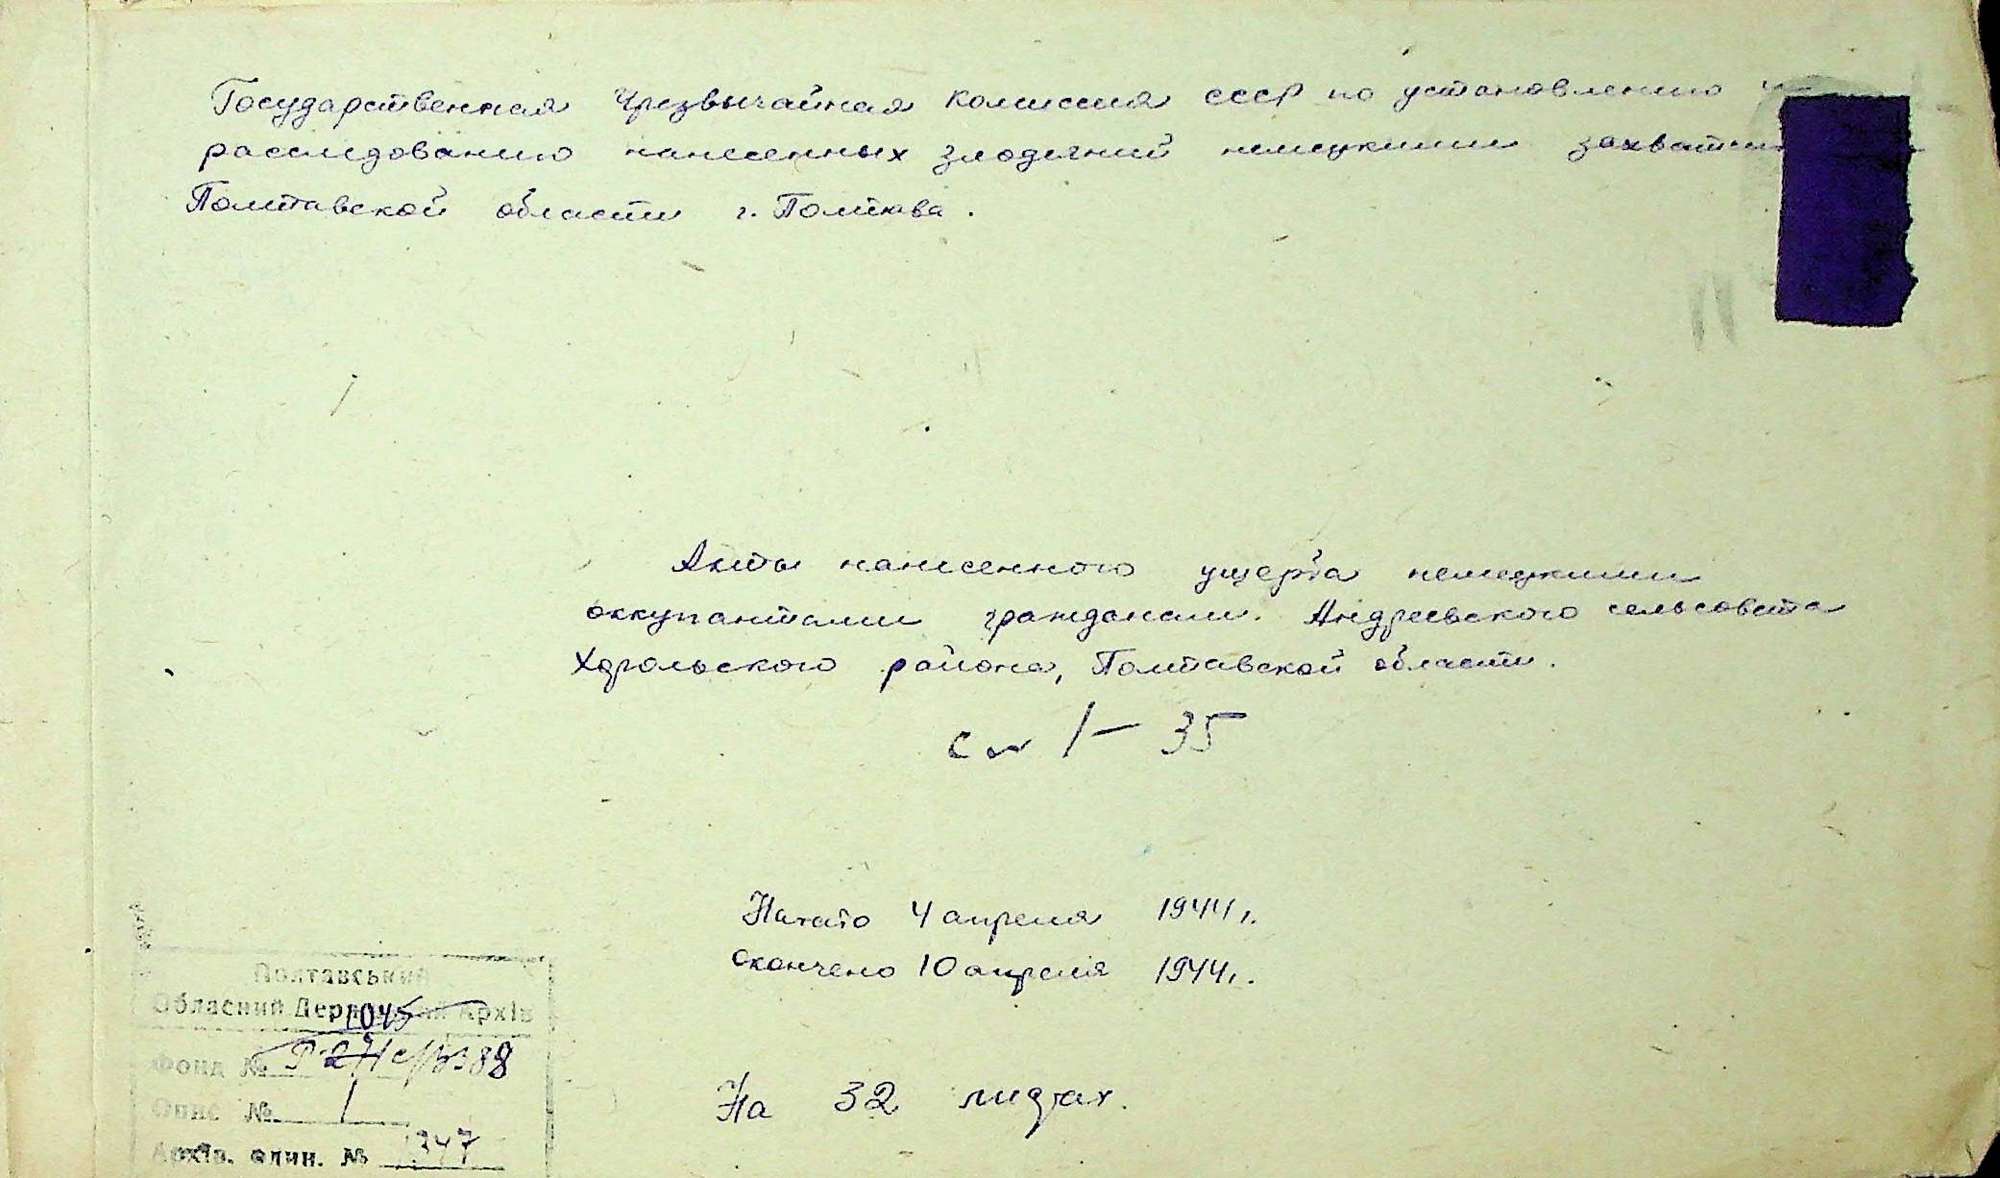 Государственная Чрезвычайная Комиссия СССР по установлению и
расследованию нанесенных злодеяний немецкими захватчи
Полтавской области г. Полтава.
Акты нанесенного ущерба немецкими
оккупантами гражданам. Андреевского сельсовета
Хорольского района, Полтавской области.
1-35
Начато 4 апреля 1944 г.
Окончено 10 апреля 1944 г.
На 32 листах.
Полтавський
Обласний Державний Архів
1045
Фонд № 3388
Опис № 1
Архів. один. № 1347